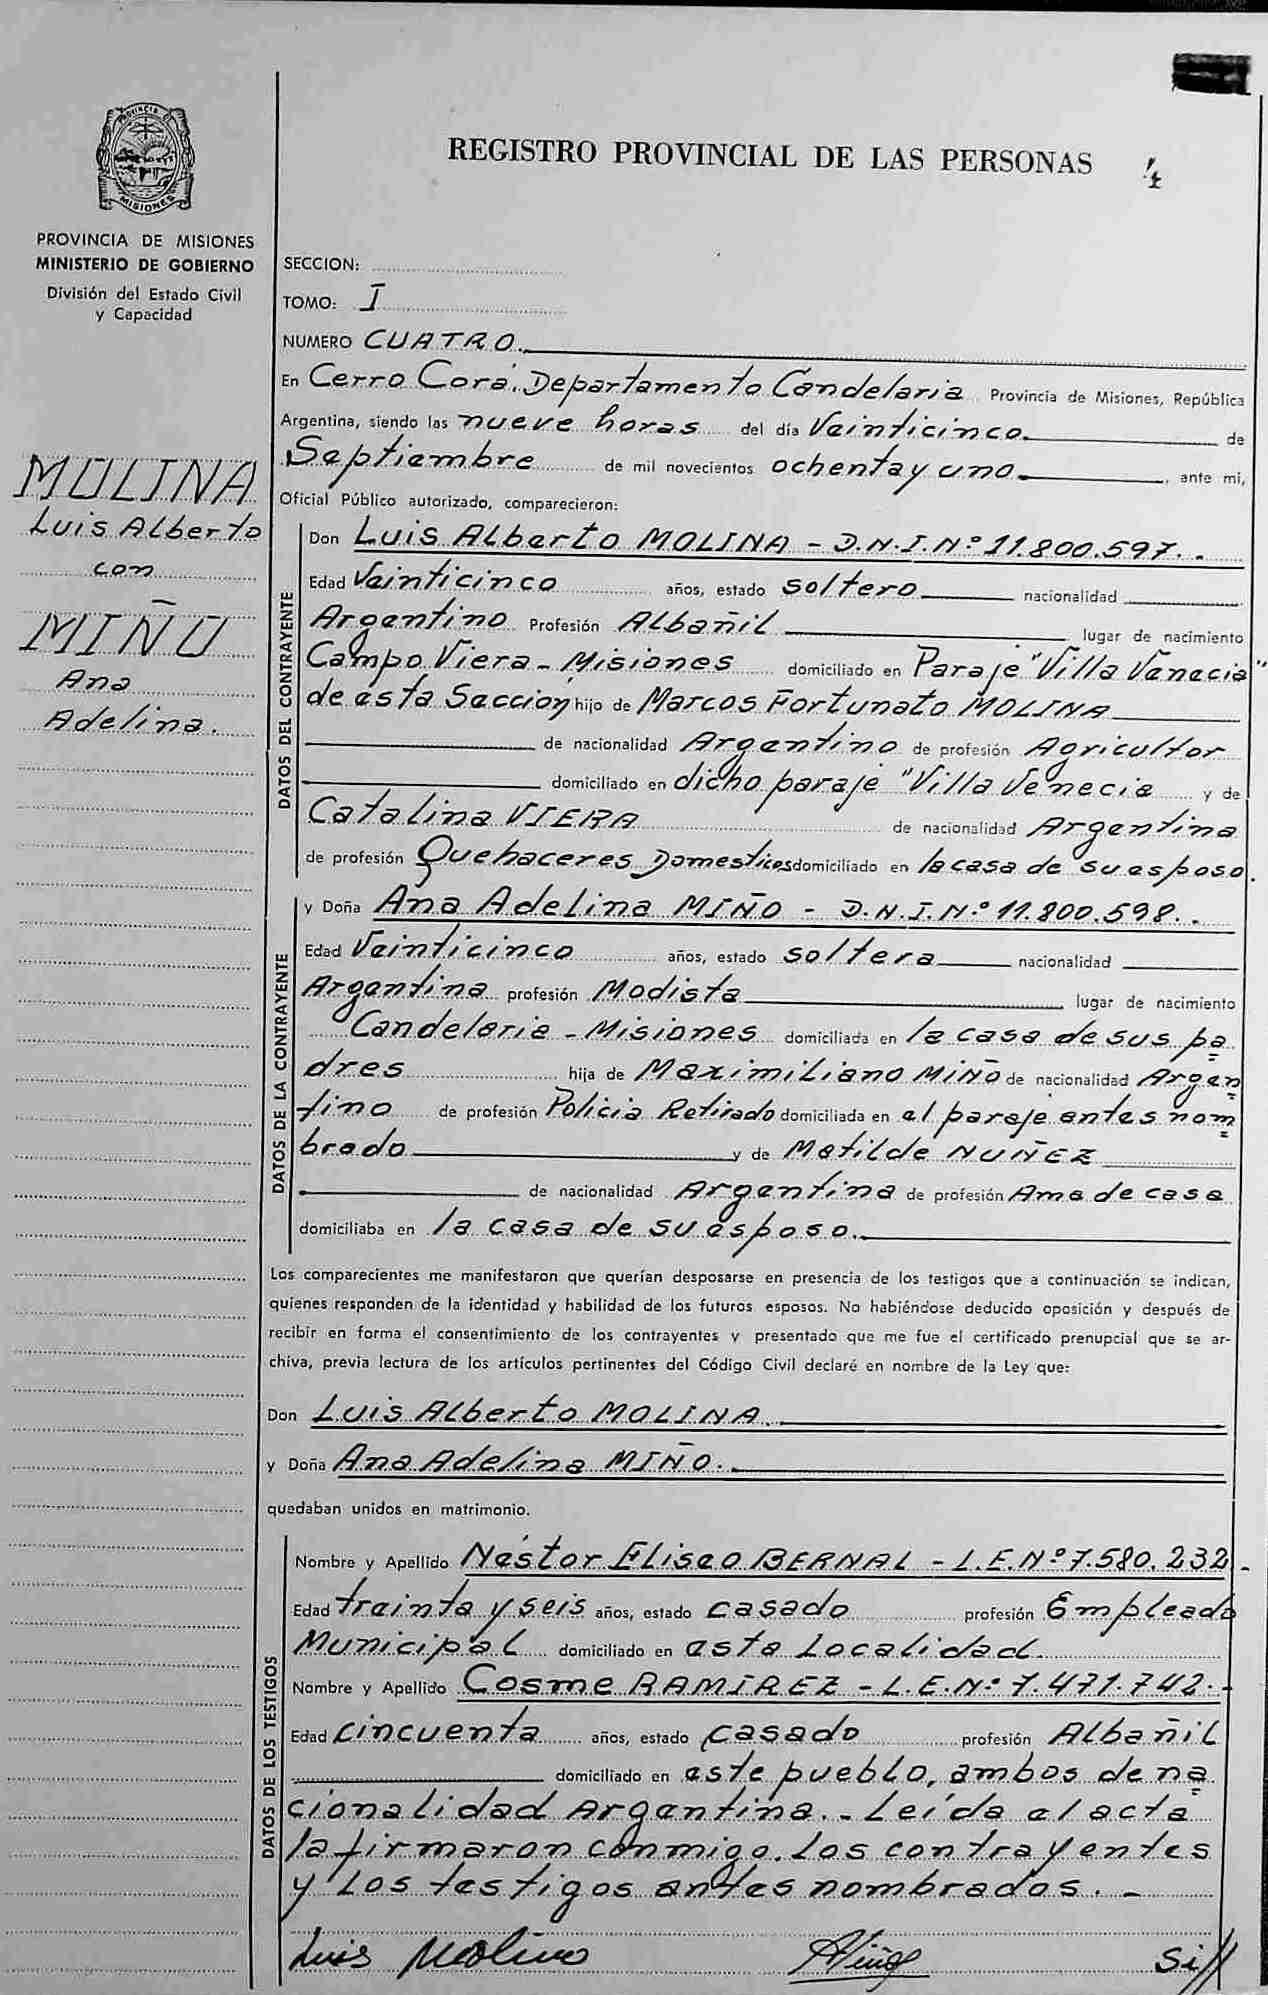 REGISTRO PROVINCIAL DE LAS PERSONAS
PROVINCIA DE
MISIONES
PROVINCIA DE MISIONES
MINISTERIO DE GOBIERNO
División del Estado Civil
y Capacidad
MOLINA
Luis Alberto
con
MIÑO
Ana
Adelina.
SECCION:
TOMO: I
NUMERO CUATRO.
En Cerro Corá, Departamento Candelaria Provincia de Misiones, República
Argentina, siendo las nueve horas del día Veinticinco. de
Septiembre de mil novecientos ochenta y uno , ante mi,
Oficial Público autorizado, comparecieron:
DATOS DEL CONTRAYENTE
Don Luis Alberto MOLINA - D.N.I.Nº 11.800.597. -
Edad Veinticinco años, estado soltero nacionalidad
Argentino Profesión Albañil lugar de nacimiento
Campo Viera - Misiones domiciliado en Paraje "Villa Venecia"
de ésta Sección, hijo de Marcos Fortunato MOLINA
de nacionalidad Argentino de profesión Agricultor
domiciliado en dicho paraje "Villa Venecia y de
Catalina VIERA de nacionalidad Argentina
de profesión Quehaceres Domesticos domiciliado en la casa de su esposo.
DATOS DE LA CONTRAYENTE
y Doña Ana Adelina MIÑO - D.N.I.Nº 11.800.598. -
Edad Veinticinco años, estado soltera nacionalidad
Argentina profesión Modista lugar de nacimiento
Candelaria - Misiones domiciliada en la casa de sus pa=
dres hija de Maximiliano MIÑO de nacionalidad Argen=
tino de profesión Policia Retirado domiciliada en el paraje antes nom=
brado y de Matilde NUÑEZ
de nacionalidad Argentina de profesión Ama de casa
domiciliaba en la casa de su esposo.
Los comparecientes me manifestaron que querían desposarse en presencia de los testigos que a continuación se indican,
quienes responden de la identidad y habilidad de los futuros esposos. No habiéndose deducido oposición y después de
recibir en forma el consentimiento de los contrayentes y presentado que me fue el certificado prenupcial que se ar-
chiva, previa lectura de los artículos pertinentes del Código Civil declaré en nombre de la Ley que:
Don Luis Alberto MOLINA.
y Doña Ana Adelina MIÑO.
quedaban unidos en matrimonio.
DATOS DE LOS TESTIGOS
Nombre y Apellido Néstor Eliseo BERNAL - L.E.Nº 7.580.232 -
Edad treinta y seis años, estado casado profesión Empleado
Municipal domiciliado en esta Localidad.
Nombre y Apellido Cosme RAMIREZ - L.E.Nº 7.471.742. -
Edad cincuenta años, estado casado profesión Albañil
domiciliado en este pueblo, ambos de na=
cionalidad Argentina. - Leída el acta
la firmaron conmigo, los contrayentes
y los testigos antes nombrados. -
Luis Molina